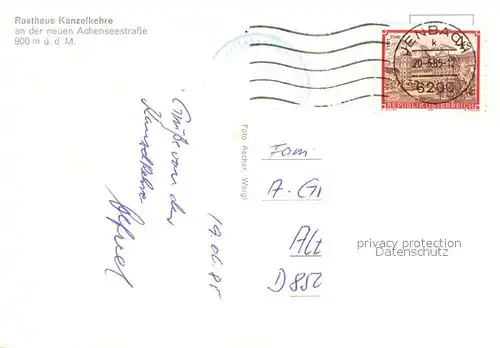 Rasthaus Kanzelkehre
an der neuen Achenseestraße
900 m ü. d. M.
Grüße von der
Kanzelkehre
19.06.85
Foto Ascher, Wörgl
Fam.
A. Gi
Alt
D 852
privacy protection
Datenschutz
JENBACH
20.-6.85-17
6200
REPUBLIK ÖSTERREICH